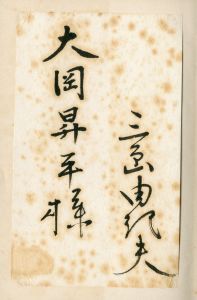 大岡昇平様
三島由紀夫